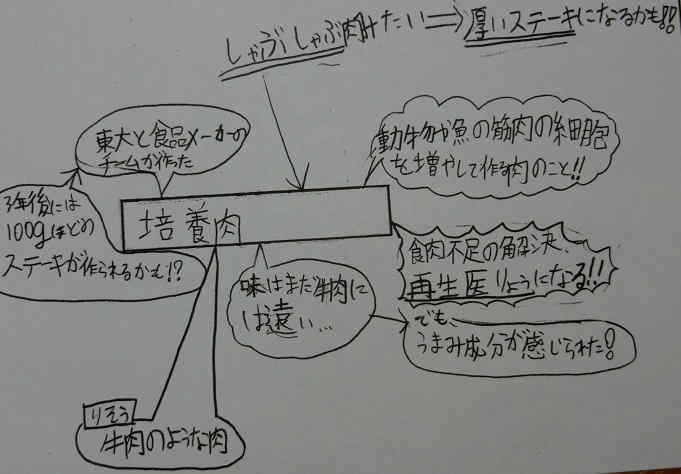 しゃぶしゃぶ肉みたい⇒厚いステーキになるかも!!
東大と食品メーカーの
チームが作った
動物や魚の筋肉の細胞
を増やして作る肉のこと!!
3年後には
100gほどの
ステーキが作られるかも!?
培養肉
食肉不足の解決、
再生医りょうになる!!
味はまだ牛肉に
は遠い…
でも、
うまみ成分が感じられた!
りそう
牛肉のような肉